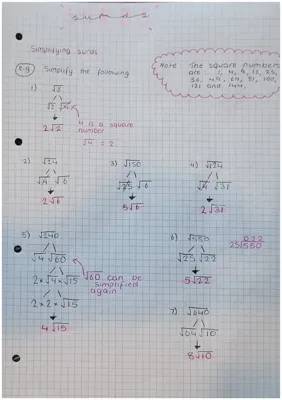 surds
Simplifying surds
e.g. Simplify the following
Note: The square numbers
are 1, 4, 9, 16, 25,
36, 49, 64, 81, 100,
121 and 144.
1) √8
√2 √4
2√2
4 is a square
number
√4 = 2
2) √24
√4 √6
2√6
3) √150
√25 √6
5√6
4) √124
√4 √31
2√31
5) √240
√4 √60
2 × √4 × √15
2 × 2 × √15
4√15
√60 can be
simplified
again
6) √550
√25 √22
5√22
022
25√550
7) √640
√64 √10
8√10